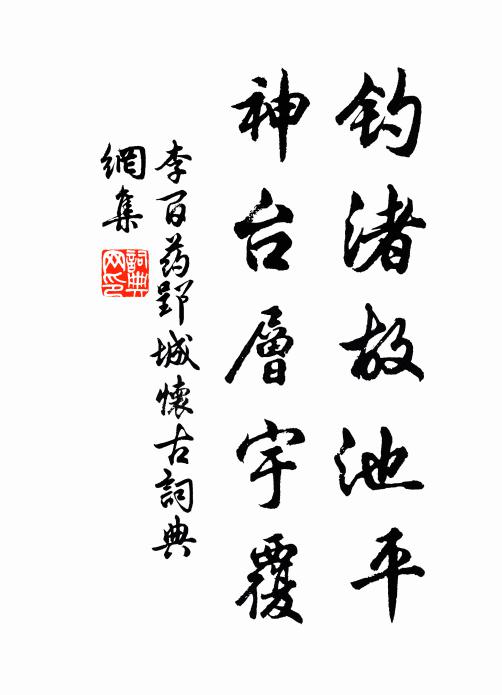 钓渚故池平
神台层宇覆
李百药郢城怀古词典
網集
詞典
网印